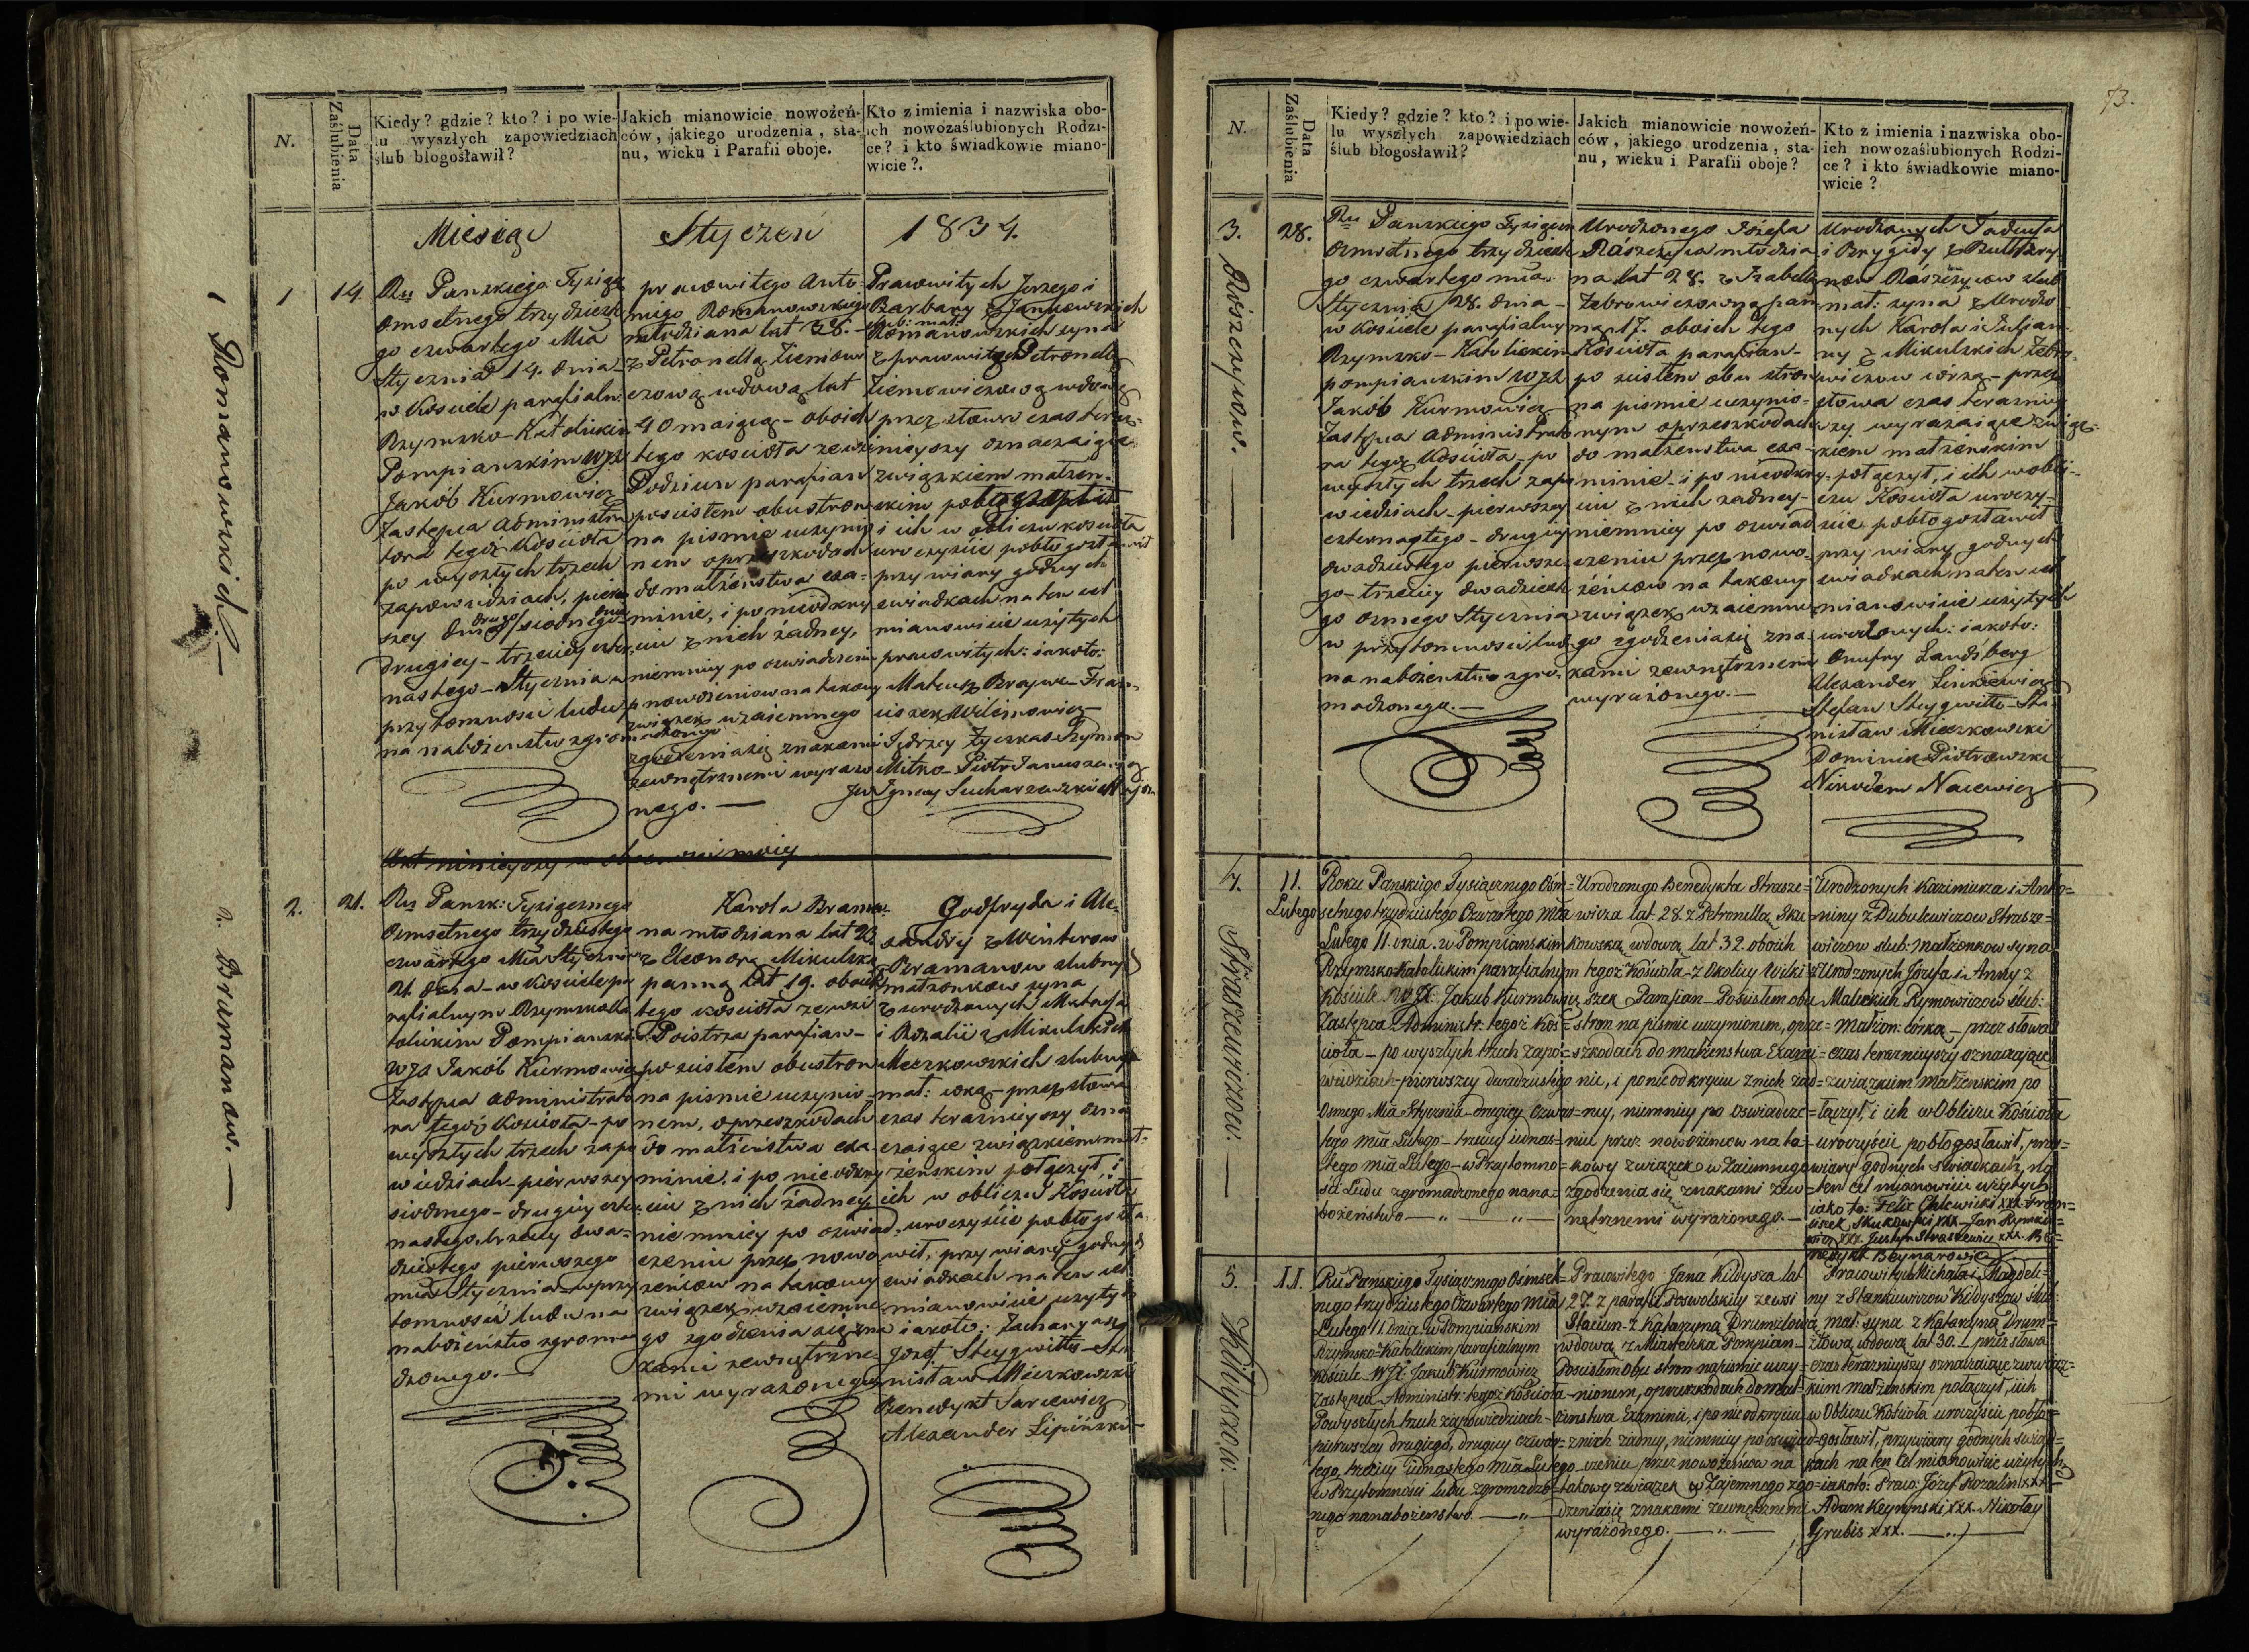 N.
Data Zaślubienia
Kiedy? gdzie? kto? i po wie-
lu wyszłych zapowiedziach
ślub błogosławił?
Jakich mianowicie nowożeń-
ców, jakiego urodzenia, sta-
nu, wieku i Parafii oboje.
Kto z imienia i nazwiska obo-
ich nowozaślubionych Rodzi-
ce? i kto świadkowie miano-
wicie?.
Miesiąc Styczeń 1834.
1 Romanowskich.
1
14.
Ru Panskiego Tysiącz
omsetnego trzydziest
go czwartego Mca
Stycznia 14. dnia
w Kosciele parafialn.
Rzymsko-Katolickim
Pompianskim WJX
Jakób Kurmowicz
Zastępca administra
tora tegóż Kościoła
po wyszłych trzech
zapowiedziach, pierw
szey dnia siodmego
drugiey - trzeciey czter
nastego - Stycznia w
przytomnosci ludu
na nabożenstwo zgromadzonego
prawowitego Anto-
niego Romanowskiego
młodziana lat 38.
z Petronellą Ziemow
czową wdową lat
40 maiącą - oboich
tego kościoła zewsi
Podziun parafian
po scisłem obustron
na pismie uczynio
nem o przeszkodach
do małżeństwa exa-
minie, i po nieodkry
ciu z nich żadney,
niemniey po oswiadczeniu
p nowożeniow na takowy
związek wzaiemnego
zgodzeniasię znakami
zewnętrznemi wyrażo
nego. —
Prawowitych Jerzego i
Barbary z Jankowskich
slub: mał:
Romanowskich syna
z prawowitą Petronellą
Ziemowiczową wdową
przez słowa czas teraz-
nieyszy oznaczaiące
związkiem małżen-
skim
i ich w obliczu kościoła
uroczyście pobłogosławił
przy wiary godnych
swiadkach na ten cel
mianowicie użytych
prawowitych: iakoto:
Mateusz Fran-
ciszek Wilimowicz
Jędrzey Życzkas Szymon
Mitko - Piotr
Ignacy Sucharzewski
Akt ninieyszy
2. Bramanow. —
2.
21.
Ru Pansk: Tysiącznego
Osmsetnego trzydziestego
czwartego Mca Stycznia
21. dnia - w Kosciele pa
rafialnym Rzymskoka
tolickim Pompianskim
WJX Jakób Kurmowicz
Zastępca administrato
ra tegóż Kościoła - po
wyszłych trzech zapo
wiedziach - pierwszey
siodmego - drugiey czter
nastego, trzeciey dwa-
dziestego pierwszego
mca Stycznia - w przy
tomności ludu na
nabożeństwo zgroma
dzonego. —
Karola Brama-
na młodziana lat 23
z Eleonorą Mikulską
panną lat 19. oboich
tego kościoła zewsi
Poistrza parafian -
po scisłem obustron
na pismie uczynio-
nem, o przeszkodach
do małżeństwa exa-
minie, i po nieodkry
ciu z nich żadney
niemniey po oświad-
czeniu przez nowo
żeńcow na takowy
związek wzaiemne
go zgodzenia się zna
kami zewnętrzne
mi wyrażonego
Godfryda i Ale-
xandry z Winterow
Bramanow slubnych
małżonkow syna
z urodzonych Michała
i Rozalii z Mikulskich
Meczkowskich slubnych
mał: corką - przez słowa
czas teraznieyszy ozna
czaiące związkiem mał-
żenskim połączył i
ich w obliczu Kościoła
uroczyście pobłogosła
wił, przy wiary godnych
swiadkach na ten cel
mianowicie użytych
iakoto: Zacharyasz
Józef Steygwiłło - Sta
nisław Mieczkowski
Benedykt Jarcewicz
Alexander Lipiński
73.
N.
Data Zaślubienia
Kiedy? gdzie? kto? i po wie-
lu wyszłych zapowiedziach
ślub błogosławił?
Jakich mianowicie nowożeń-
ców, jakiego urodzenia, sta-
nu, wieku i Parafii oboje?
Kto z imienia i nazwiska obo-
ich nowozaślubionych Rodzi-
ce? i kto świadkowie miano-
wicie?
3.
28.
Rószczycow. —
Ru Panskiego Tysiączn
osmsetnego trzydziest
go czwartego mca
Stycznia 28. dnia -
w kościele parafialny
Rzymsko-Katolickim
pompianskim WJX
Jakób Kurmowicz
Zastępca administrato
ra tegóż Kościoła - po
wyszłych trzech zapo
wiedziach - pierwszey
czternastego - drugiey
dwadziestego pierwsze
go - trzeciey dwadziest
go osmego Stycznia
w przytomnosci ludu
na nabożeństwo zgro-
madzonego. —
Urodzonego Józefa
Rószczyca młodzia
na lat 28. z Izabellą
Żebrowiczowną pan
ną 17. oboich tego
Kościoła parafian -
po scisłem obu stron
na pismie uczynio-
nym o przeszkodach
do małżenstwa exa-
minie - i po nieodkry
ciu z nich żadney -
niemniey po oswiad
czeniu przez nowo-
żeńcow na takowy
związek wzaiemne
go zgodzeniasię zna-
kami zewnętrznemi
wyrażonego. —
Urodzonych Tadeusza
i Brygidy z
now Rószczycow slub
mał: syna z Urodzo
nych Karola i Julian-
ny z Mikulskich Żebro
wiczow córką - przez
słowa czas teraźniey
szy wyrażaiące związ-
kiem małżenskim
połączył, i ich w obli-
czu Kościoła uroczy-
ście pobłogosławił
przy wiary godnych
swiadkach na ten cel
mianowicie użytych
urodzonych: iakoto:
Onufry Landsberg
Alexander Linkiewicz
Stefan Steygwiłło - Sta
nisław Mieczkowski
Dominik Piotrowski
Nikodem Nacewicz
4.
11.
Lutego
Straszewiczow. —
Roku Panskiego Tysiącznego Osm-
setnego trzydziestego Czwartego Mca
Lutego 11. dnia. w Pompianskim
Rzymsko Katolickim parafialnym
Kosciele WJX: Jakub Kurmowicz
Zastępca Administr: tegoż Koś-
cioła - po wyszłych trzech zapo-
wiedziach - pierwszey dwadziestego
Osmego Mca Stycznia - drugiey Czwar-
tego Mca Lutego - trzeciey iednas-
tego mca Lutego - w Przytomno-
ści Ludu zgromadzonego na na-
bożeństwo — „ — „ —
Urodzonego Benedykta Strasze-
wicza lat 28. z Petronellą Sku-
kowską wdową lat 32. oboich
tegoż Kościoła - z Okolicy Wilki
szek Parafian - Poscisłem obu
stron na pismie uczynionem, o prze-
szkodach do małżenstwa Exami-
nie, i po nieodkryciu z nich żad-
ney, niemniey po Oswiadcze-
niu przez nowożencow na ta-
kowy związek wzaiemnego
zgodzenia się znakami zew-
nętrznemi wyrażonego. —
Urodzonych Kazimierza i Anto-
niny z Dubulewiczow Strasze-
wiczow slub: małżonkow syna
z Urodzonych Józefa i Anny z
Maleckich Rymowiczow slub:
małżon: córką - przez słowa
czas teraznieyszy oznaczaiące
związkiem małżenskim po
łączył, i ich w Obliczu Kościoła
uroczyście pobłogosławił, przy
wiary godnych swiadkach, na
ten cel mianowicie użytych
iako to: Felix Chlewicki xxx. Fran-
ciszek Skukowski xxx. Jan Rymko-
wicz xxx. Justyn Straszewicz xxx. Be-
nedykt Beynarowicz
5.
11.
Kildyszow. —
Ru Panskiego Tysiącznego Ośmset-
nego trzydziestego Czwartego Mca
Lutego 11. dnia. w Pompianskim
Rzymsko-Katolickim parafialnym
Kosciele WJX: Jakub Kurmowicz
Zastępca Administr: tegoż Kościoła -
Po wyszłych trzech zapowiedziach -
pierwszey drugiego, drugiey czwar-
tego, trzeciey iednastego Mca Lutego
w Przytomnosci ludu zgromadzo-
nego na nabożenstwo. — „ —
Pracowitego Jana Kildysza lat
27. z parafii Poswolskiey zewsi
Staciun - z Katarzyną Drumzlową
wdową z Miasteczka Pompian -
Poscisłem Obu stron na pismie uczy-
nionem, o przeszkodach do mał-
żenstwa Examinie, i po nieodkryciu
z nich żadney, niemniey po oswiad-
czeniu przez nowożeńcow na
takowy związek wzajemnego zgo-
dzeniasię znakami zewnętrznemi
wyrażonego. — „ —
Pracowitych Michała i Magdale-
ny z Stankiewiczow Kildyszow slub:
mał: syna z Katarzyną Drum-
złową wdową lat 30. - przez słowa
czas teraznieyszy oznaczaiące związ-
kiem małżenskim połączył, i ich
w Obliczu Kościoła uroczyście pobło-
gosławił, przy wiary godnych świad-
kach na ten Cel mianowicie użytych
iakoto: Praco: Józef Rozalin xxx.
Adam Keynynski xxx. Nikołay
Grubis xxx. — „ —